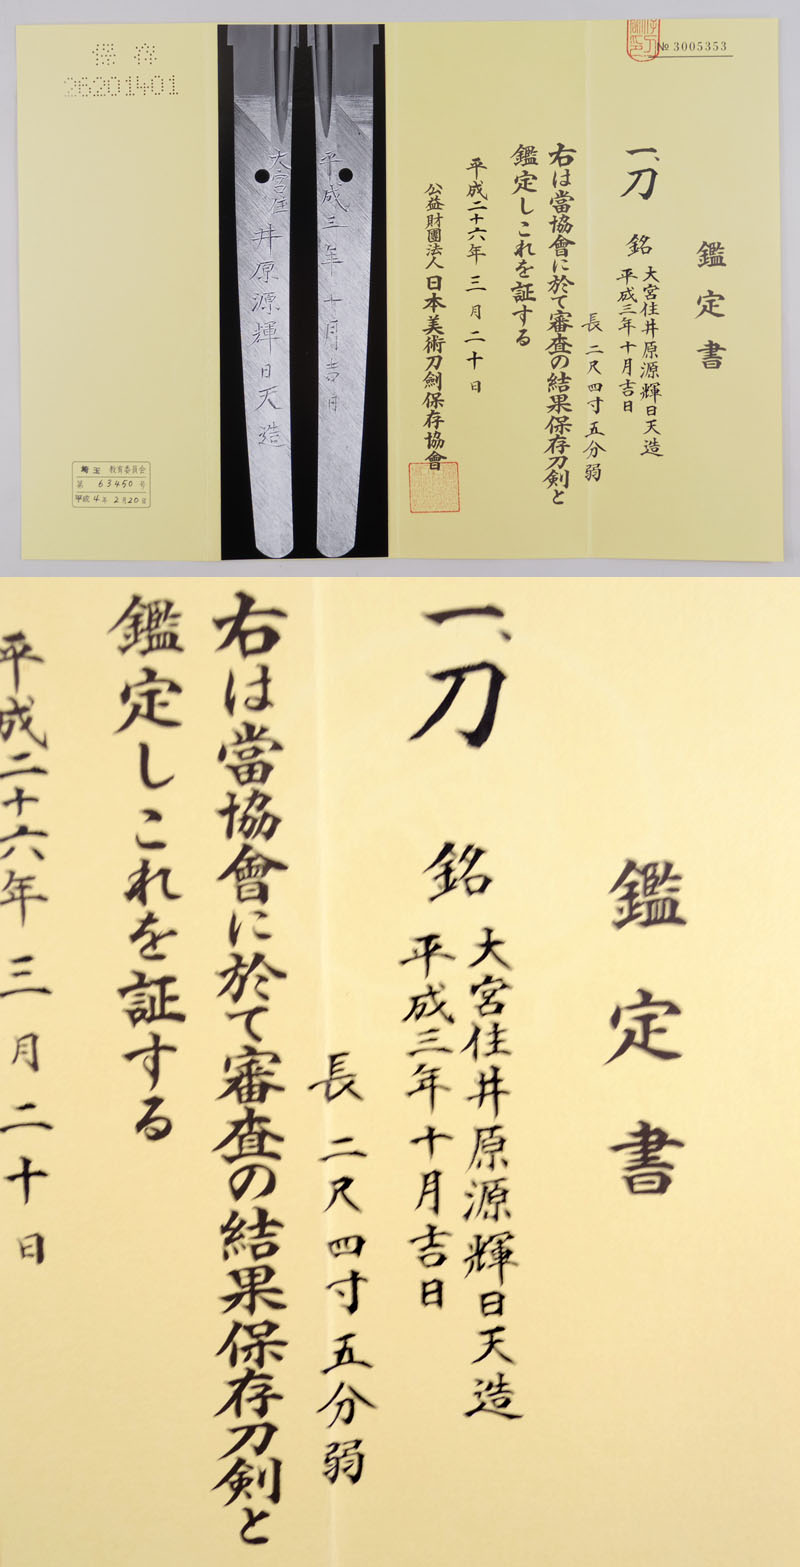 № 3005353
鑑定書
一、刀
銘
大宮住井原源輝日天造
平成三年十月吉日
長 二尺四寸五分弱
右は當協會に於て審査の結果保存刀剣と
鑑定しこれを証する
平成二十六年 三月二十日
公益財團法人 日本美術刀劍保存協會
平成三年十月吉日
大宮住井原源輝日天造
保存
26201401
埼玉 教育委員会
第 63450 号
平成4年2月20日
鑑定書
一、刀
銘
大宮住井原源輝日天造
平成三年十月吉日
長 二尺四寸五分弱
右は當協會に於て審査の結果保存刀剣と
鑑定しこれを証する
平成二十六年 三月二十日